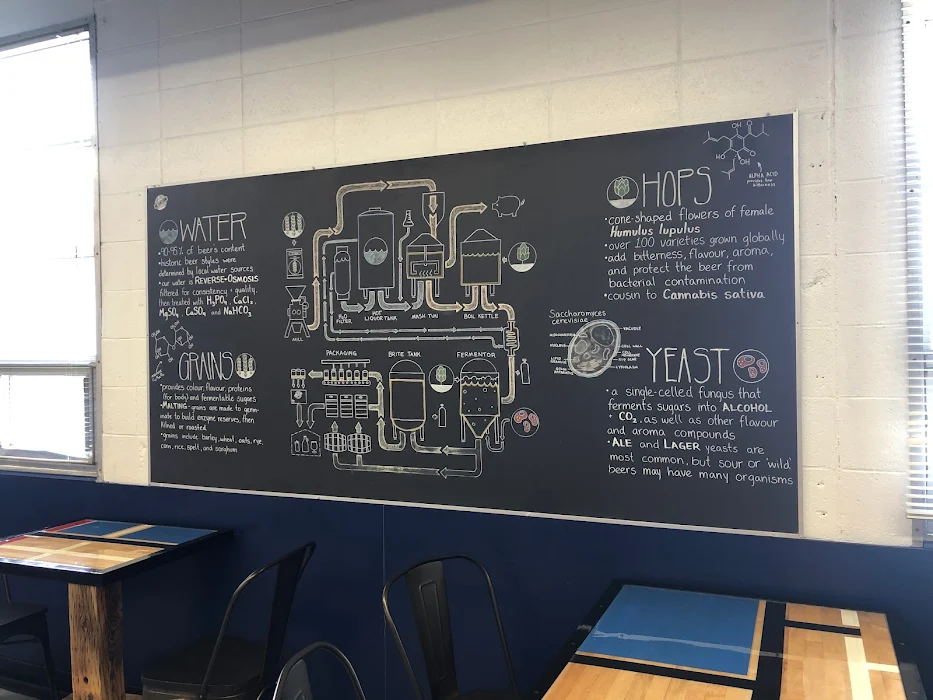 WATER
•90-95% of beers content
•historic beer styles were
determined by local water sources
•our water is REVERSE-OSMOSIS
filtered for consistency + quality,
then treated with H3PO4, CaCl2,
MgSO4, CaSO4 and NaHCO3
GRAINS
•provides colour, flavour, proteins
(for body) and fermentable sugars
•MALTING-grains are made to germ-
inate to build enzyme reserves, then
kilned or roasted
•grains include barley, wheat, oats, rye,
corn, rice, spelt, and sorghum
MILL
H2O
FILTER
HOT
LIQUOR TANK
MASH TUN
BOIL KETTLE
PACKAGING
BRITE TANK
FERMENTOR
OH
O
HO
OH
ALPHA ACID
provides
bitterness
HOPS
•cone-shaped flowers of female
Humulus lupulus
•over 100 varieties grown globally
•add bitterness, flavour, aroma,
and protect the beer from
bacterial contamination
•cousin to Cannabis sativa
Saccharomyces
cerevisiae
VACUOLE
CELL WALL
BUD SCAR
CYTOPLASM
YEAST
•a single-celled fungus that
ferments sugars into ALCOHOL
+ CO2, as well as other flavour
and aroma compounds
•ALE and LAGER yeasts are
most common, but sour or 'wild'
beers may have many organisms